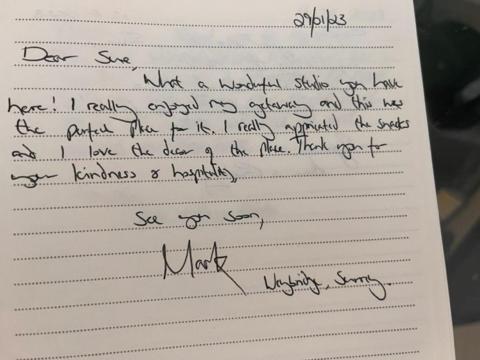 29/01/23
Dear Sue,
What a wonderful studio you have
here! I really enjoyed my getaway and this was
the perfect place for it. I really appreciated the snacks
and I love the decor of the place. Thank you for
your kindness & hospitality,
See you soon,
Mark
Weybridge, Surrey.